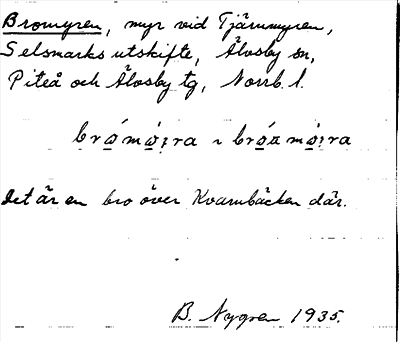 Bromyren, myr vid Tjärnmyren,
Selsmarks utskifte, Älvsby sn,
Piteå och Älvsby tg, Norrb. l.
Det är en bro över Kvarnbäcken där.
B. Nygren 1935.